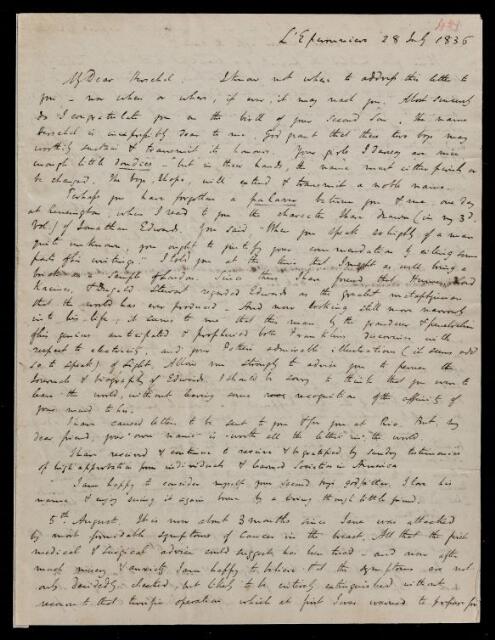 L'Epervanciers 28 July 1836
My Dear Herschel. I know not where to address this letter to
you - nor when or where, if ever, it may reach you. Most sincerely
do I congratulate you on the birth of your Second Son, the name
Herschel is inexpressibly dear to me. God grant that these two boys may
worthily sustain & transmit its honours. Your girls I daresay are nice
enough little but in their hands, the name must either perish or
be changed. The boys, I hope, will extend & transmit a noble name.
Perhaps you have forgotten a palaver between you & me, one day
at Kensington, when I read to you the character I have drawn (in my 3d
Vol.) of Jonathan Edwards. You said "When you speak so highly of a man
quite unknown, you ought to justify your commendations by citing some
parts of his writings." I told you at the time that I might as well bring a
brick as a sample of London. Since then I have found that Hume, and
& Dugald Stewart regarded Edwards as the greatest metaphysician
that the world has ever produced. And now looking still more narrowly
into his life, it seems to me that this man by the grandeur & penetration
of his genius anticipated & prophesied both Franklin's discoveries with
respect to electricity and your Father's admirable illustrations (it seems odd
so to speak) of Light. Allow me strongly to advise you to peruse the
Journals & biography of Edwards. I should be sorry to think that you were to
leave the world, without having some recognition of the affinity of
your mind to his.
I have caused letters to be sent to you & for you at Rio. But my
dear friend, your own name is worth all the letters in the world.
I have received & continue to receive & be gratified by sundry testimonies
of high approbation from individuals & learned Societies in America
I am happy to consider myself your second boy's godfather. I love his
name & enjoy seeing it again borne by a living though little friend.
5th August. It is now about 3 months since Jane was attacked
by most formidable symptoms of Cancer in the breast. All that the first
medical & Surgical advice could suggest has been tried - and now after
much misery & anxiety I am happy to believe that the symptoms are not
only decidedly checked, but likely to be entirely extinguished without
recourse to that terrific operation which at first I was warned to prepare for